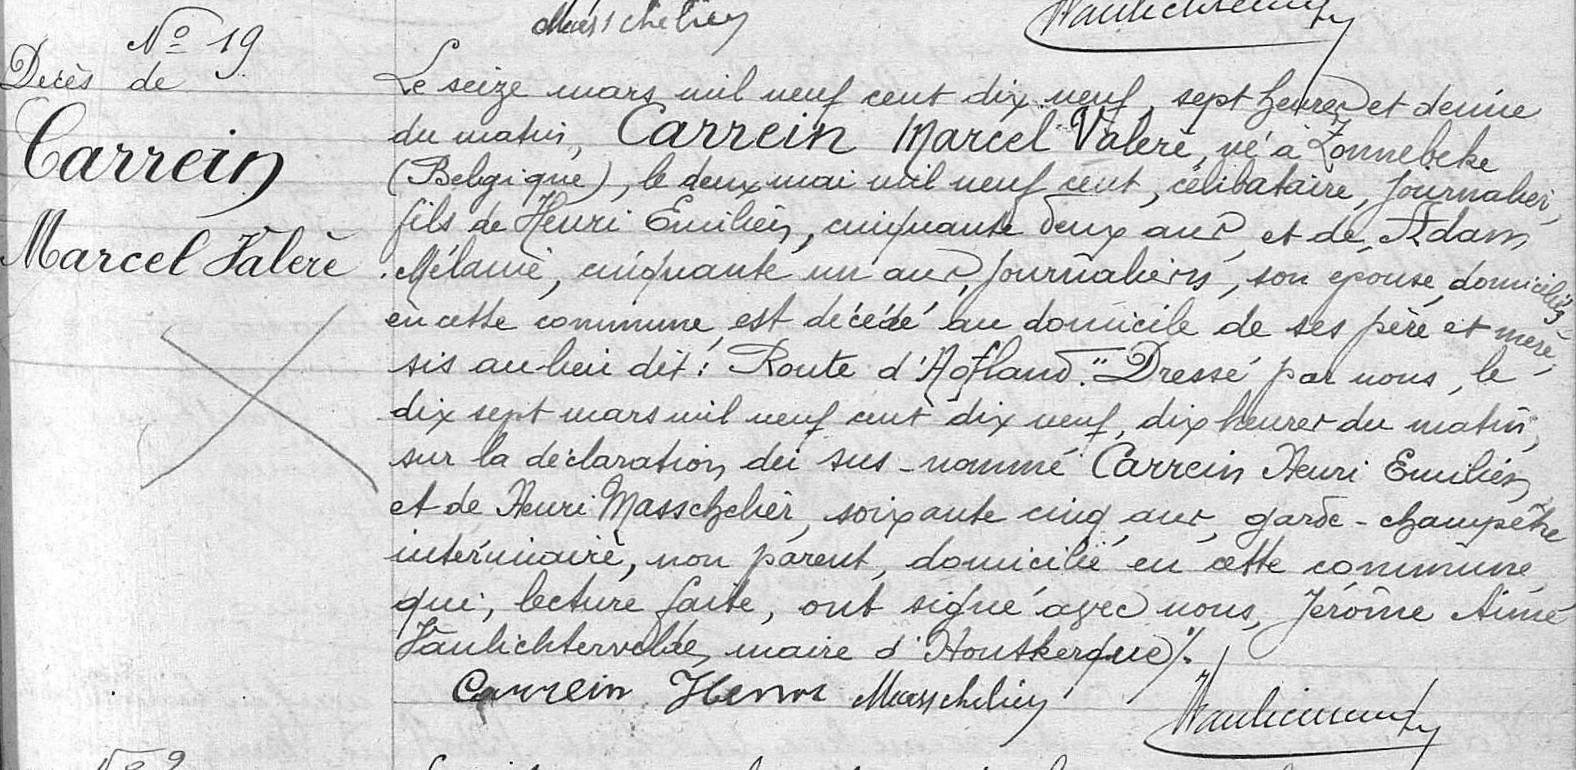 Masschelier
Nº 19
Decès de
Carrein
Marcel Valère
Le seize mars mil neuf cent dix neuf, sept heures et demie
du matin, Carrein Marcel Valère, né à Zonnebeke
(Belgique), le deux mai mil neuf cent, célibataire, journalier,
fils de Henri Emilien, cinquante deux ans, et de Adam
Mélanie, cinquante un ans, journaliers, son épouse, domiciliés
en cette commune, est décédé au domicile de ses père et mère,
sis au lieu dit: "Route d'Hofland." Dressé par nous, le
dix sept mars mil neuf cent dix neuf, dix heures du matin,
sur la déclaration du sus-nommé Carrein Henri Emilien
et de Henri Masschelier, soixante cinq ans, garde-champêtre
intérimaire, non parent, domicilié en cette commune,
qui, lecture faite, ont signé avec nous, Jérôme Aimé
Vanlichtervelde, maire d'Houtkerque ⁒.
Carrein Henri Masschelier